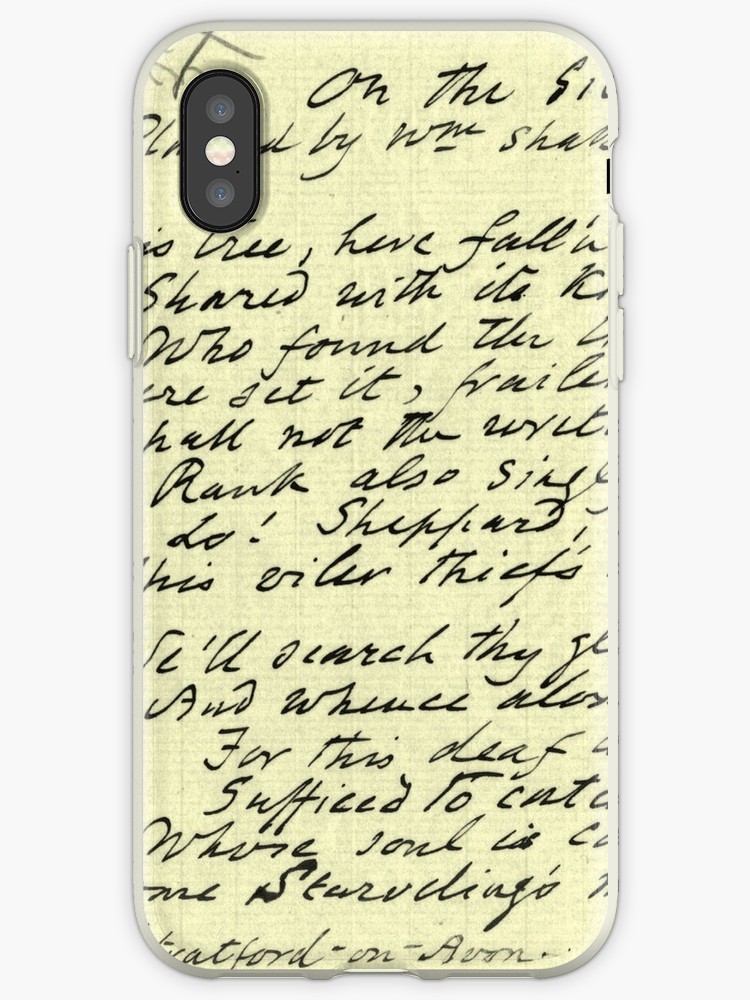 On the Si
d by Wm Shak
is tree, here fall'n
Shared with its k
Who found the
ere set it, frailer
hall not the
Rank also sing
Lo! Sheppard,
his viler thief's
e'll search thy gl
And whence alon
For this deaf
Sufficed to catc
Whose soul is ca
ome Starveling's n
Stratford-on-Avon.